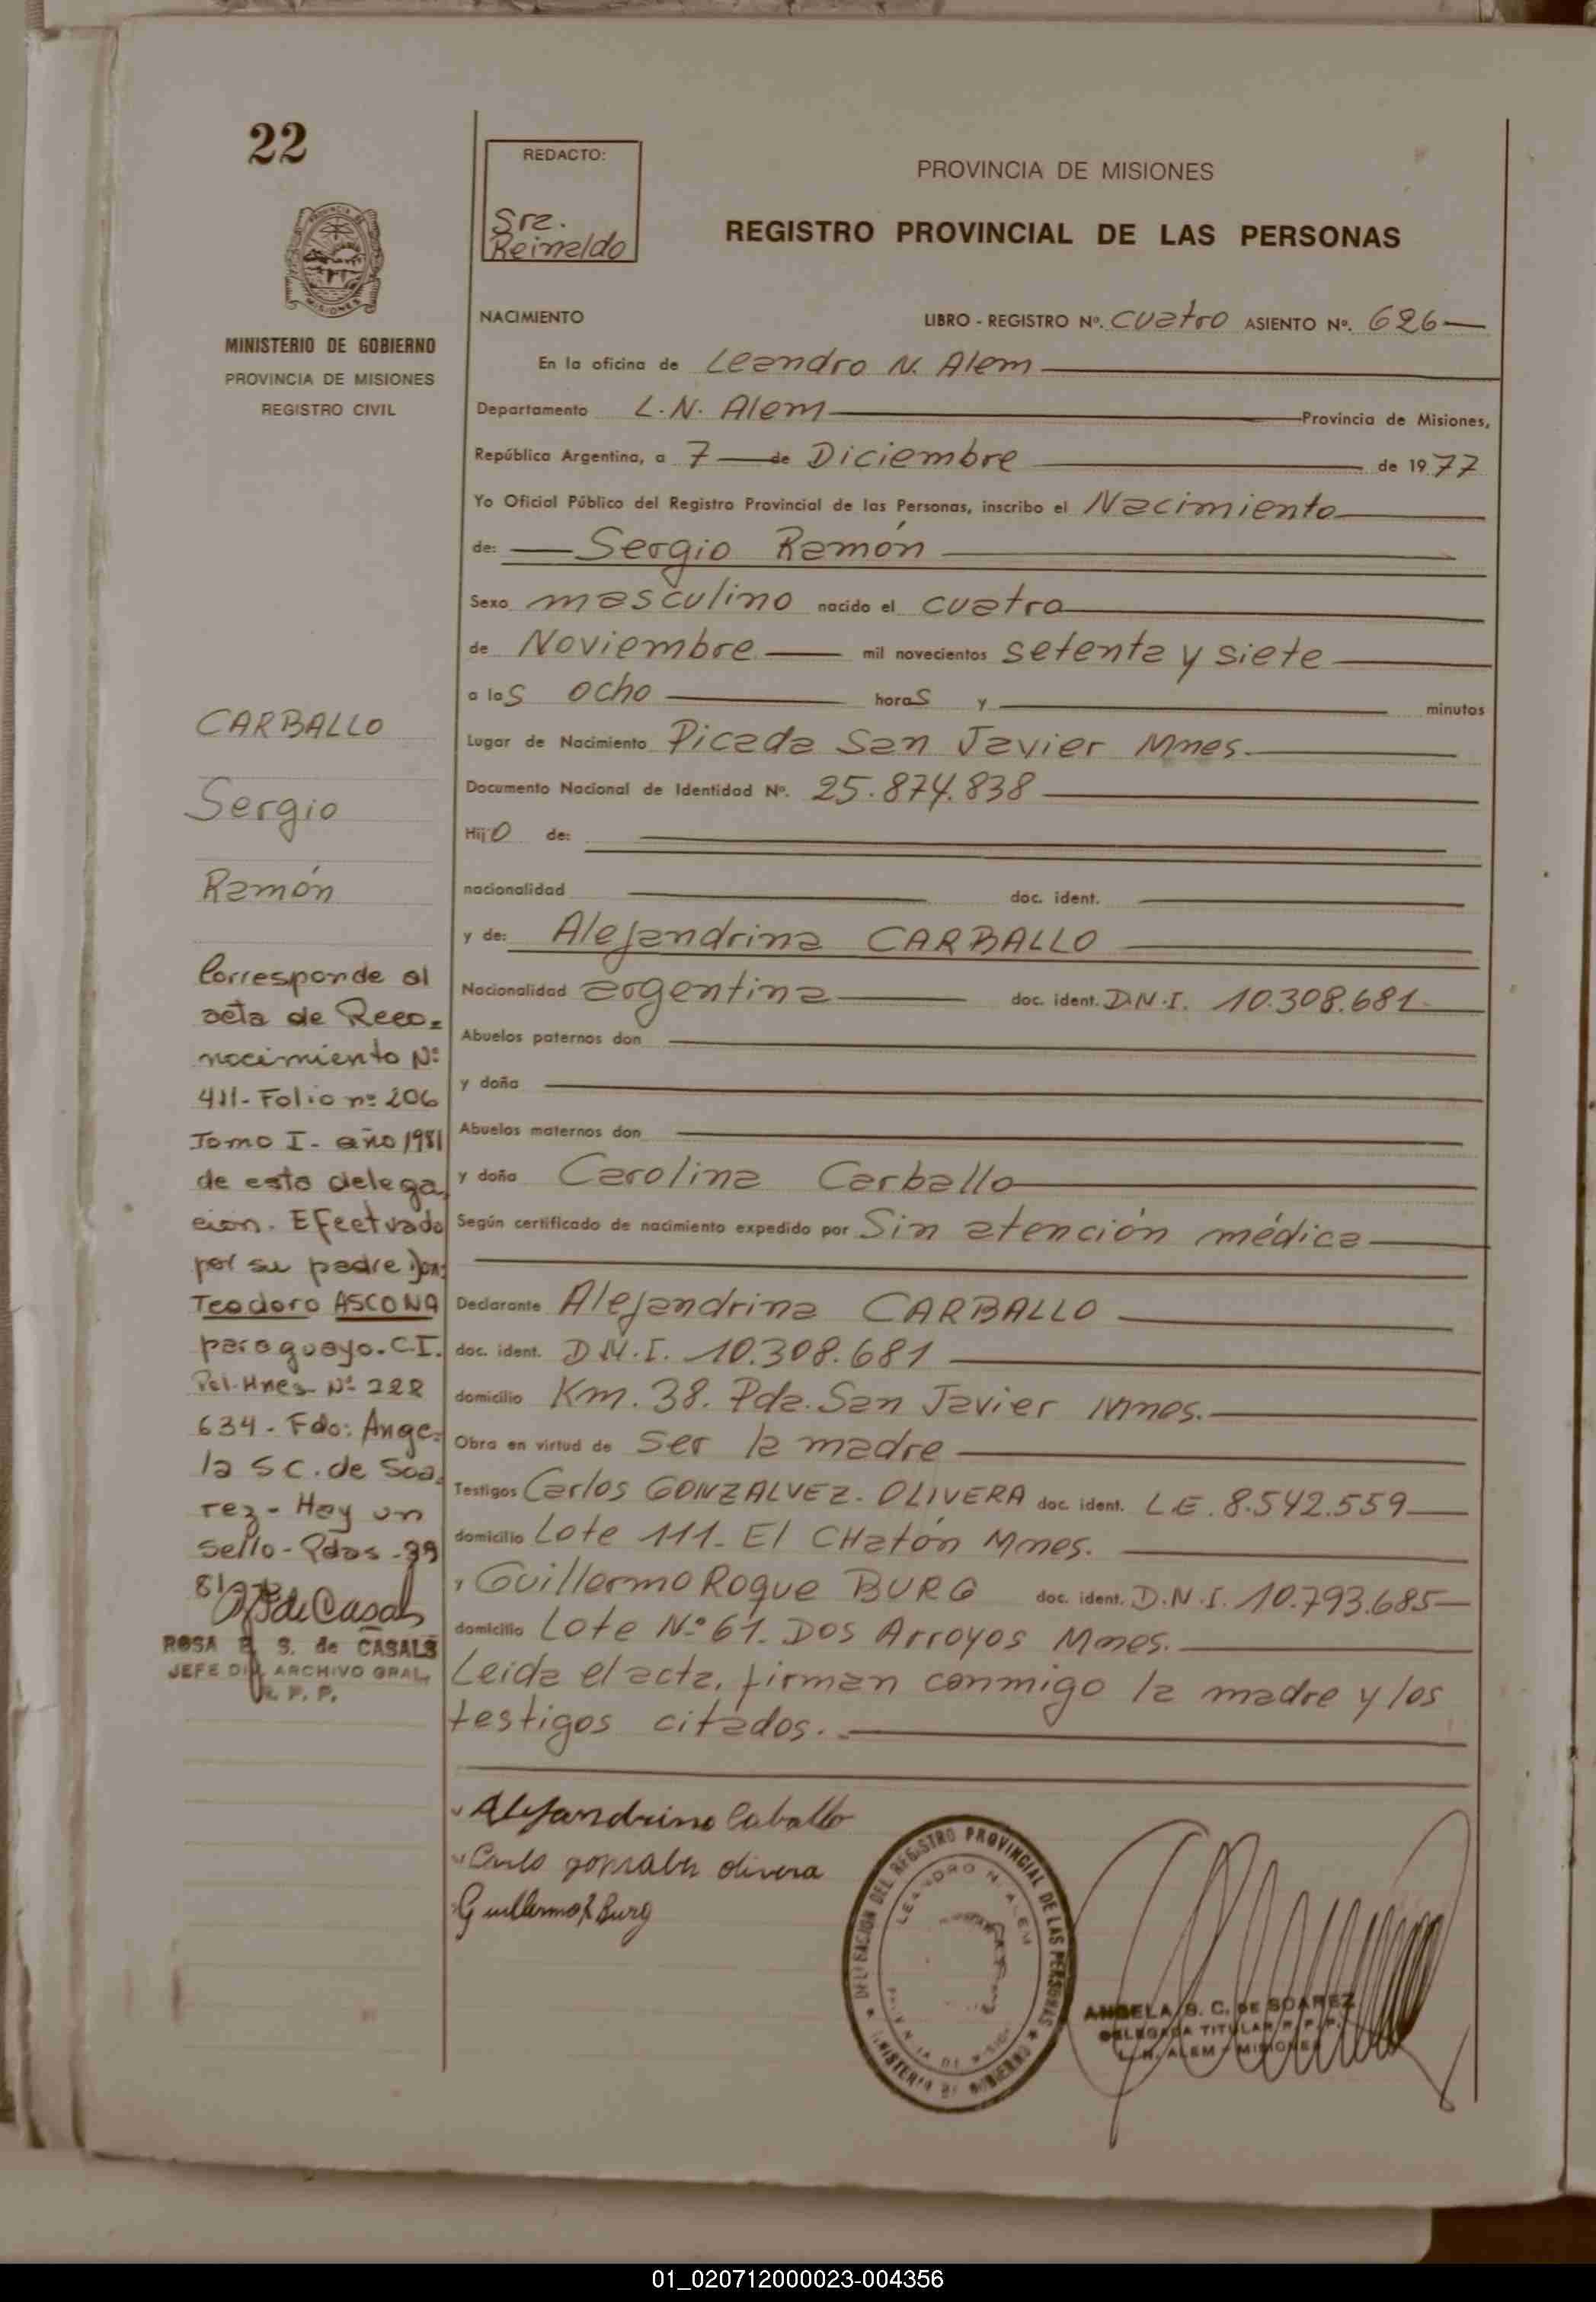 22
REDACTO:
Sra.
Reinaldo
PROVINCIA DE MISIONES
REGISTRO PROVINCIAL DE LAS PERSONAS
MINISTERIO DE GOBIERNO
PROVINCIA DE MISIONES
REGISTRO CIVIL
NACIMIENTO LIBRO - REGISTRO Nº. cuatro ASIENTO Nº. 626
En la oficina de Leandro N. Alem
Departamento L.N. Alem Provincia de Misiones,
República Argentina, a 7 de Diciembre de 1977
Yo Oficial Público del Registro Provincial de las Personas, inscribo el Nacimiento
de: Sergio Ramón
Sexo masculino nacido el cuatro
de Noviembre mil novecientos setenta y siete
a las ocho horas y minutos
Lugar de Nacimiento Picada San Javier Mnes.
Documento Nacional de Identidad Nº. 25.874.838
Hijo de:
nacionalidad doc. ident.
y de: Alejandrina CARBALLO
Nacionalidad argentina doc. ident. D.N.I. 10.308.681
Abuelos paternos don
y doña
Abuelos maternos don
y doña Carolina Carballo
Según certificado de nacimiento expedido por Sin atención médica
Declarante Alejandrina CARBALLO
doc. ident. D.N.I. 10.308.681
domicilio Km. 38. Pda. San Javier Mnes.
Obra en virtud de ser la madre
Testigos Carlos GONZALVEZ. OLIVERA doc. ident. L.E. 8.542.559
domicilio Lote 111- El CHatón Mnes.
, Guillermo Roque BURG doc. ident. D.N.I. 10.793.685
domicilio Lote Nº 61. Dos Arroyos Mnes.
Leida el acta, firman conmigo la madre y los
testigos citados.
CARBALLO
Sergio
Ramón
Corresponde al
acta de Reco=
nocimiento Nº
411- Folio nº 206
Tomo I- año 1981
de esta delega
cion. Efectuado
por su padre Don:
Teodoro ASCONA
paraguayo. C.I.
Pol. Mnes Nº 228
634 - Fdo: Ange=
la S C. de Soa.
rez - Hay un
sello - Pdas -
de Casals
ROSA E. S. de CASALS
JEFE DIV. ARCHIVO GRAL.
R. P. P.
Alejandrina Caballo
Carlo gonsalvez olivera
Guillermo R Burg
DELEGACION DEL REGISTRO PROVINCIAL DE LAS PERSONAS
LEANDRO N. ALEM
PROVINCIA DE MISIONES
MINISTERIO DE GOBIERNO
ANGELA S. C. DE SOAREZ
DELEGADA TITULAR R. P. P.
L. N. ALEM - MISIONES
01_020712000023-004356